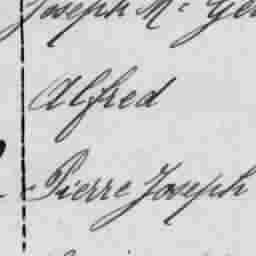 Joseph Mc
Alfred
Pierre Joseph